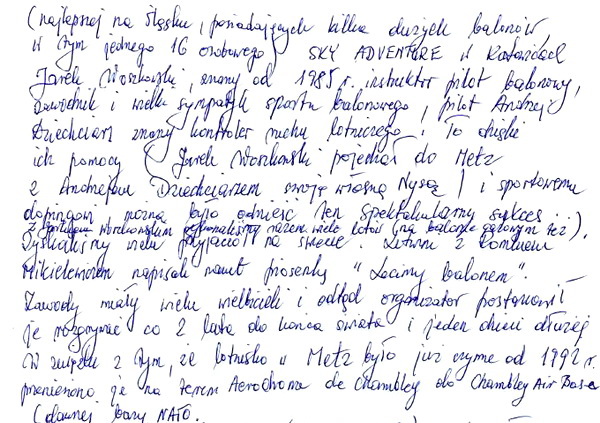 (najlepszej na Śląsku, posiadających kilka dużych balonów,
w tym jednego 16 osobowego) SKY ADVENTURE w Katowicach
Jarek Woszkowski, znany od 1985 r. instruktor pilot balonowy,
zawodnik i wielki sympatyk sportu balonowego, pilot Andrzej
Dziechciarz znany kontroler ruchu lotniczego. To dzięki
ich pomocy (Jarek Woszkowski pojechał do Metz
z Andrzejem Dziechciarzem swoją własną Nysą) i sportowemu
dopingowi można było odnieść ten spektakularny sukces
z Jarkiem Woszkowskim razem wiele lotów (na balonie gazowym też).
Zyskaliśmy wielu przyjaciół na świecie. z Romualdem
Mikielewiczem napisali nawet piosenkę "Lecimy balonem".
Zawody miały wielu wielbicieli i odtąd organizator postanowił
je rozgrywać co 2 lata do końca świata i jeden dzień dłużej
W związku z tym, że lotnisko w Metz było już czynne od 1992 r.
przeniesiono je na teren Aerodromu de Chambley do Chambley Air Base
(dawnej bazy NATO.